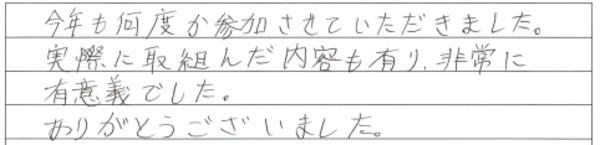 今年も何度か参加させていただきました。
実際に取組んだ内容も有り、非常に
有意義でした。
ありがとうございました。